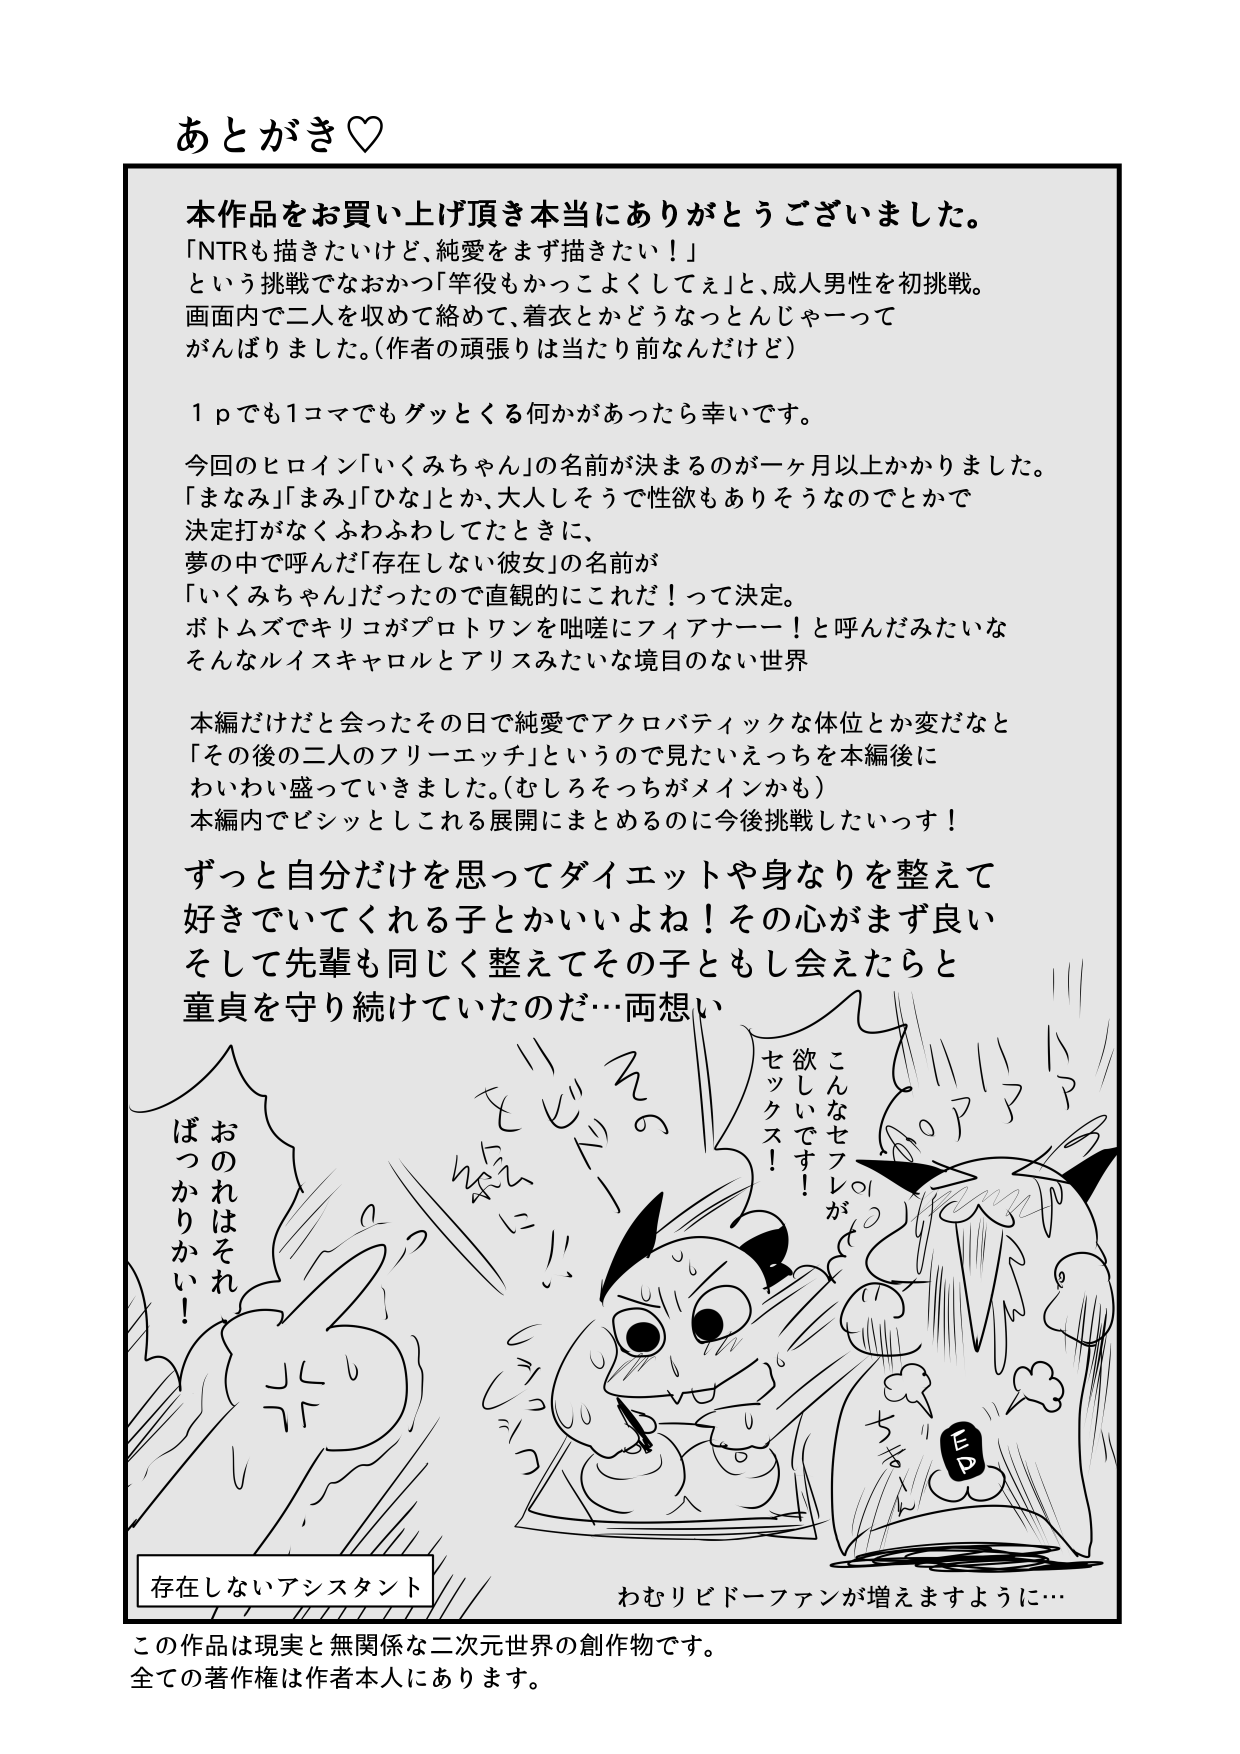 あとがき♡
本作品をお買い上げ頂き本当にありがとうございました。
「NTRも描きたいけど、純愛をまず描きたい！」
という挑戦でなおかつ「竿役もかっこよくしてぇ」と、成人男性を初挑戦。
画面内で二人を収めて絡めて、着衣とかどうなっとんじゃーって
がんばりました。（作者の頑張りは当たり前なんだけど）
１ｐでも1コマでもグッとくる何かがあったら幸いです。
今回のヒロイン「いくみちゃん」の名前が決まるのが一ヶ月以上かかりました。
「まなみ」「まみ」「ひな」とか、大人しそうで性欲もありそうなのでとかで
決定打がなくふわふわしてたときに、
夢の中で呼んだ「存在しない彼女」の名前が
「いくみちゃん」だったので直観的にこれだ！って決定。
ボトムズでキリコがプロトワンを咄嗟にフィアナーー！と呼んだみたいな
そんなルイスキャロルとアリスみたいな境目のない世界
本編だけだと会ったその日で純愛でアクロバティックな体位とか変だなと
「その後の二人のフリーエッチ」というので見たいえっちを本編後に
わいわい盛っていきました。（むしろそっちがメインかも）
本編内でビシッとしこれる展開にまとめるのに今後挑戦したいっす！
ずっと自分だけを思ってダイエットや身なりを整えて
好きでいてくれる子とかいいよね！その心がまず良い
そして先輩も同じく整えてその子ともし会えたらと
童貞を守り続けていたのだ…両想い
こんなセフレが
欲しいです！
セックス！
ハァハァハァ
その
リビドーを
絵に!!
おのれはそれ
ばっかりかい！
シコシコ
ちーん
ED
存在しないアシスタント
わむリビドーファンが増えますように…
この作品は現実と無関係な二次元世界の創作物です。
全ての著作権は作者本人にあります。